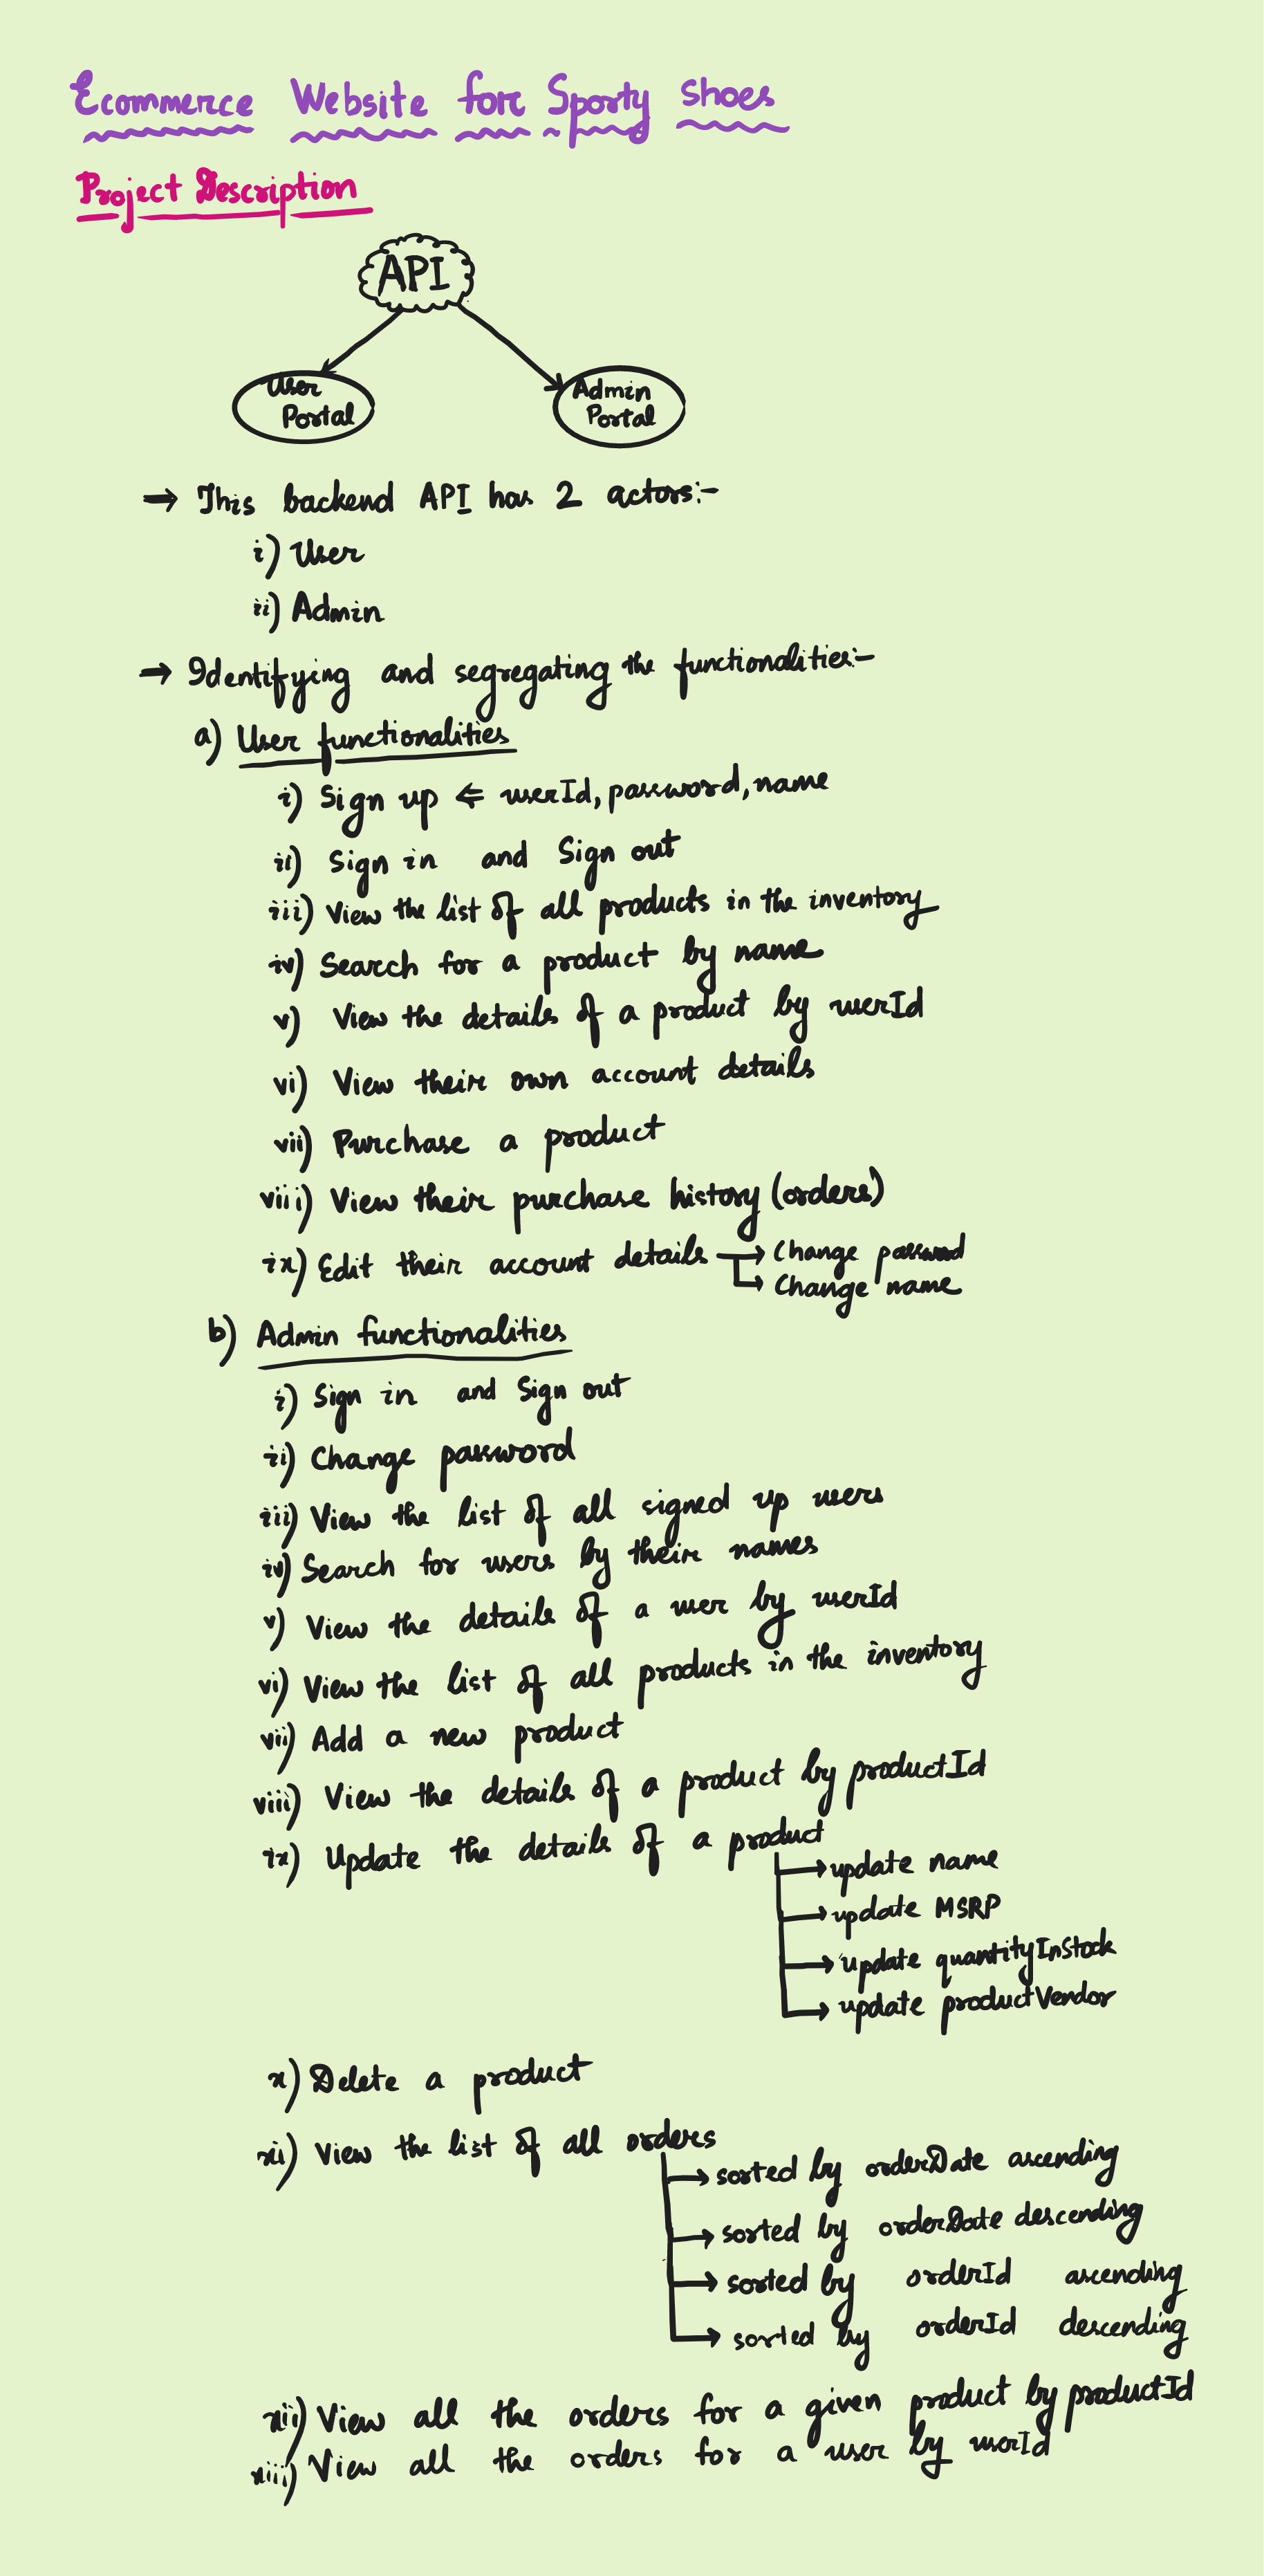 Ecommerce Website for Sporty Shoes
Project Description
API
User Portal
Admin Portal
→ This backend API has 2 actors:-
i) User
ii) Admin
→ Identifying and segregating the functionalities:-
a) User functionalities
i) Sign up ⇐ userId, password, name
ii) Sign in and Sign out
iii) View the list of all products in the inventory
iv) Search for a product by name
v) View the details of a product by userId
vi) View their own account details
vii) Purchase a product
viii) View their purchase history (orders)
ix) Edit their account details → Change password
→ Change name
b) Admin functionalities
i) Sign in and Sign out
ii) Change password
iii) View the list of all signed up users
iv) Search for users by their names
v) View the details of a user by userId
vi) View the list of all products in the inventory
vii) Add a new product
viii) View the details of a product by productId
ix) Update the details of a product
→ update name
→ update MSRP
→ update quantityInStock
→ update productVendor
x) Delete a product
xi) View the list of all orders
→ sorted by orderDate ascending
→ sorted by orderDate descending
→ sorted by orderId ascending
→ sorted by orderId descending
xii) View all the orders for a given product by productId
xiii) View all the orders for a user by userId